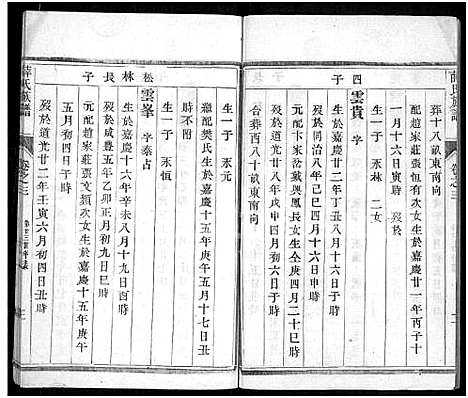 薛氏族譜
葬十八畝東南向
配趙家莊張文有次女生於嘉慶廿一年丙子十
一月十六日 時歿於
生一子 永林 二女
四子
雲貴 字
生於嘉慶廿二年丁丑八月十六日 時
歿於同治八年己巳八月 初六日 時
元配卞家岔戴興鳳長女生於
歿於光緒 年戊申四月二十日 時
合葬西八十畝東南向
松林長子
雲峯 字泰占
生於嘉慶十六年辛未八月十九日酉時
歿於咸豐五年乙卯正月初九日巳時
元配趙家莊張文頫次女生於嘉慶十五年庚午
五月十六日子時
歿於道光廿二年壬寅六月初四日丑時
繼配樊氏生於嘉慶十五年庚午五月十七日丑
時不附
生一子 永元
生一子 永恒
薛氏族譜
卷之三